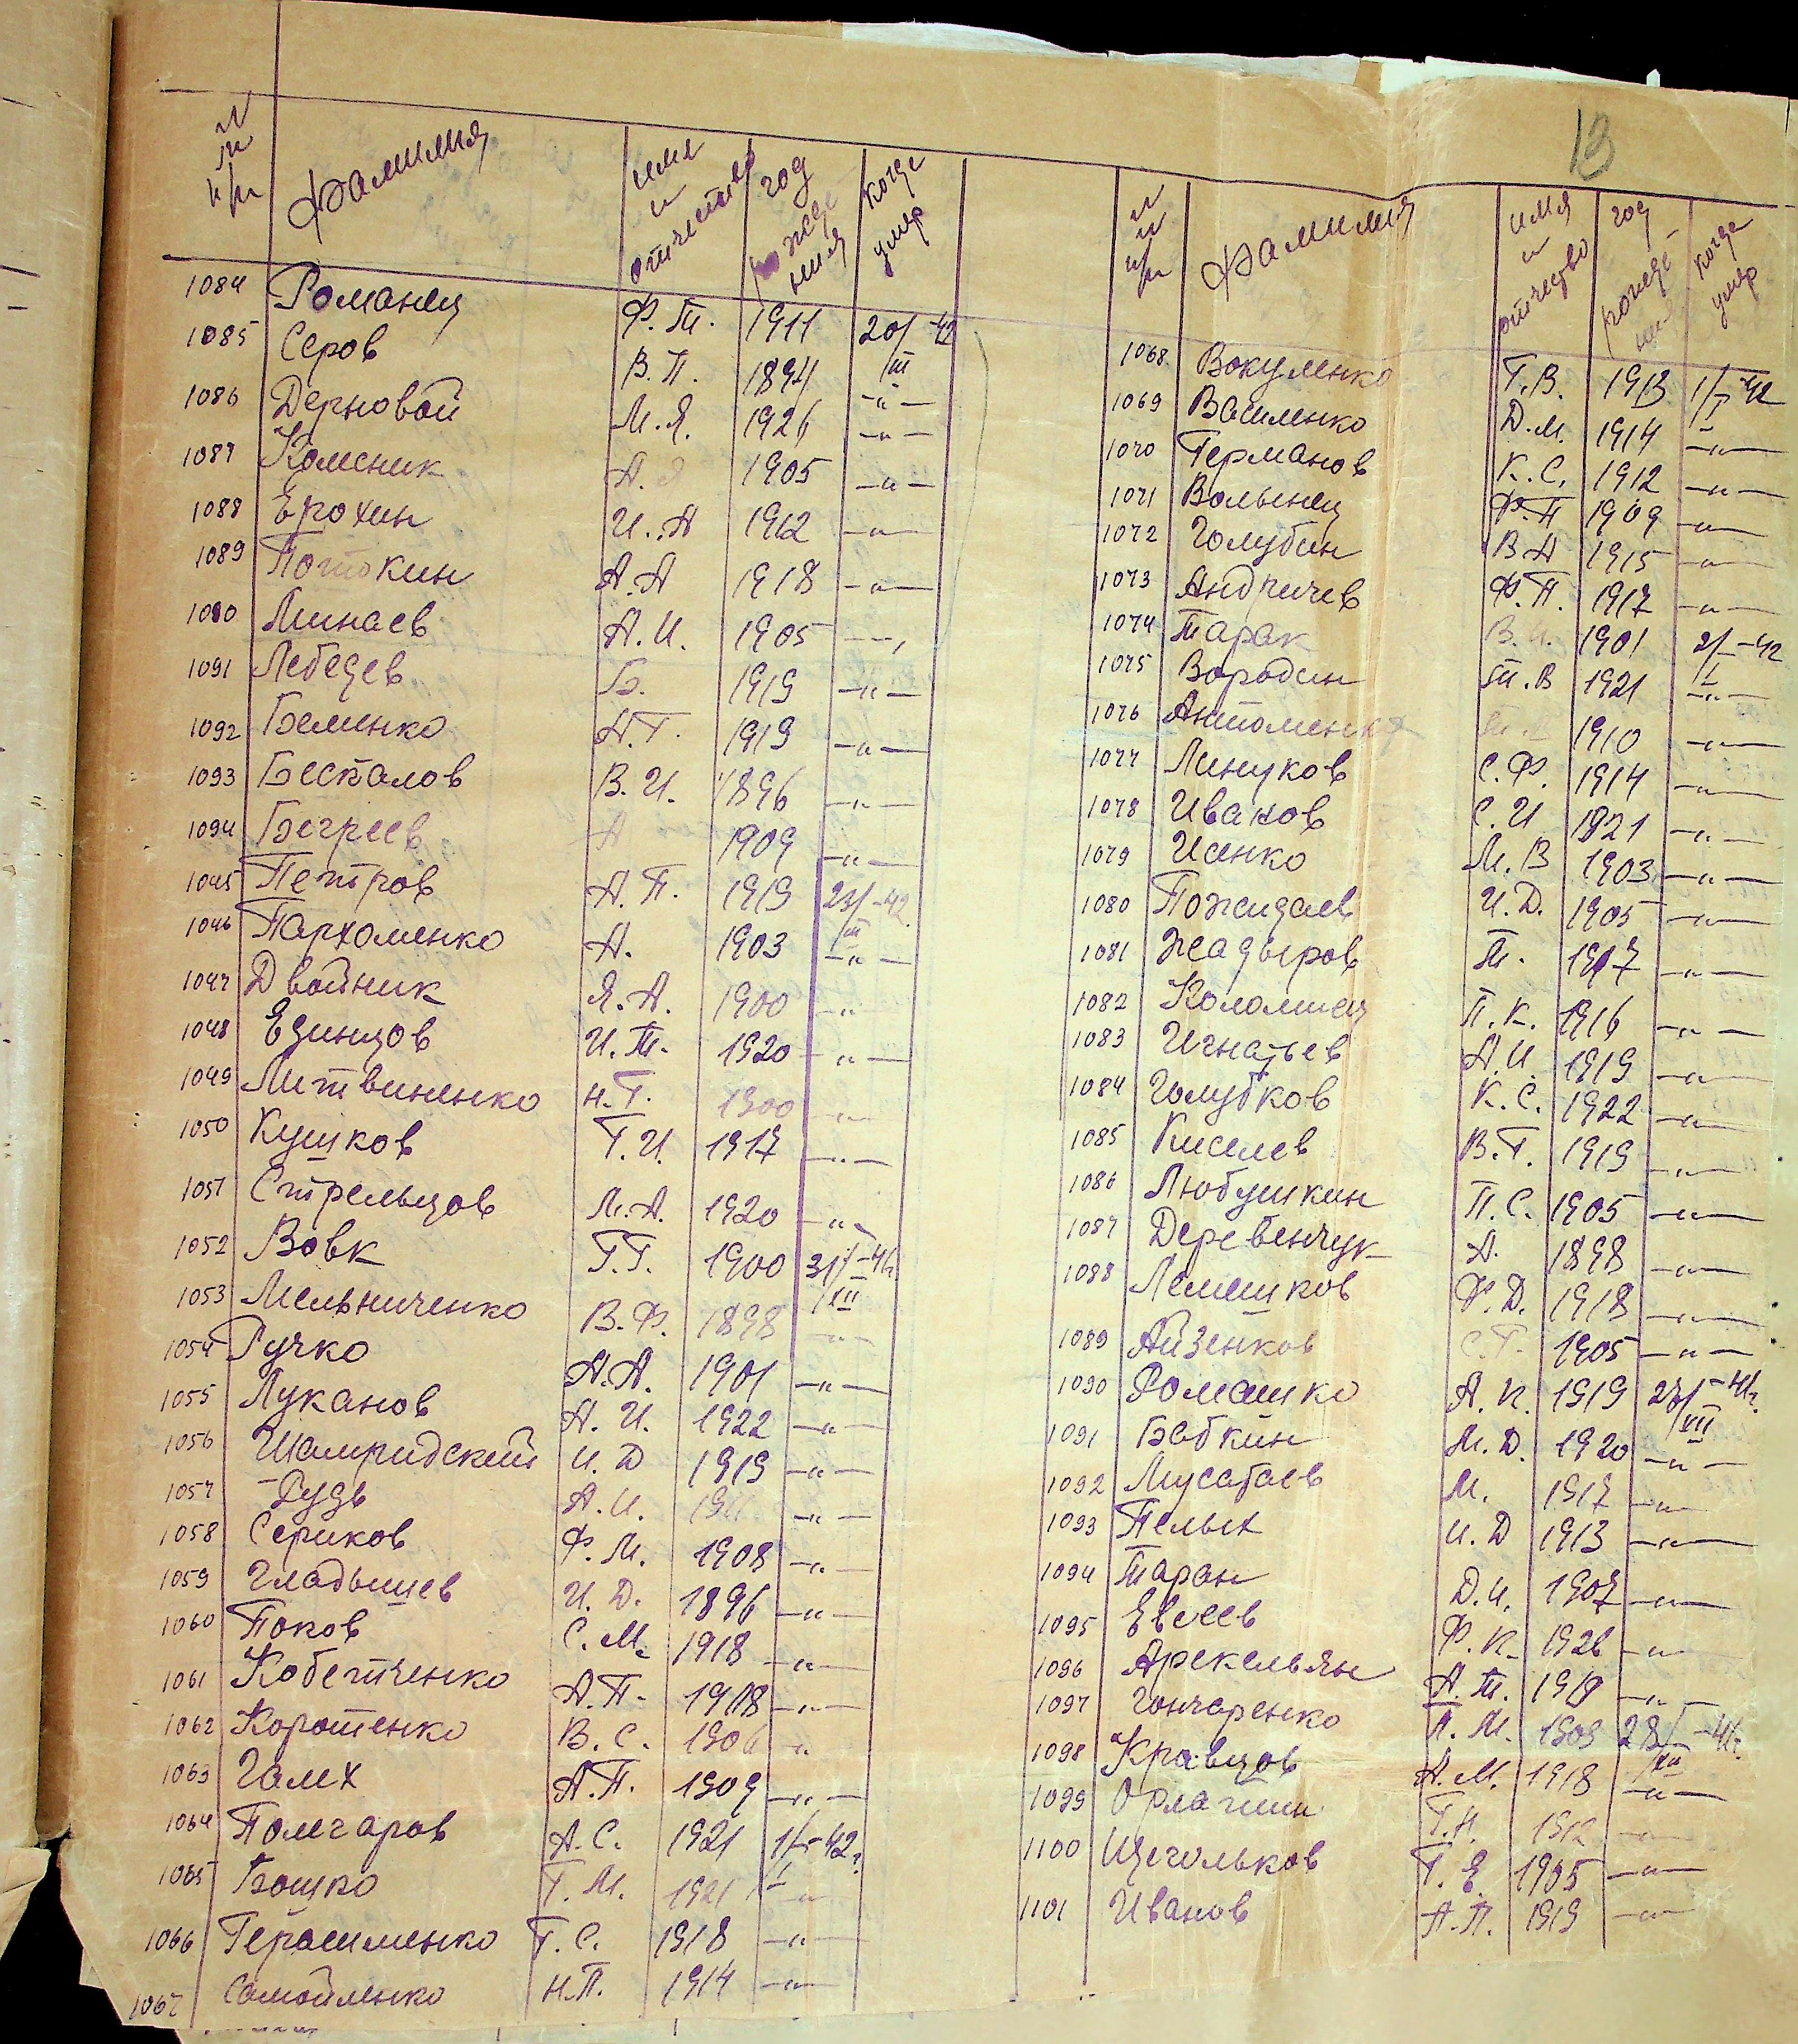 13
№ п/п Фамилия имя и отчество год рождения когда умер
1084 Романец Ф.Т. 1911 20/III-42
1085 Серов В.П. 1894 -"-
1086 Дерновой М.Я. 1926 -"-
1087 Колесник А. 1905 -"-
1088 Ерохин И.А 1912 -"-
1089 Потокин А.А 1918 -"-
1090 Минаев А.И. 1905 -"-
1091 Лебедев Б. 1919 -"-
1092 Беленко Н.Г. 1919 -"-
1093 Беспалов В.И. 1896 -"-
1094 Бегреев А 1909 -"-
1045 Петров А.П. 1919 23/III-42
1046 Пархоменко А. 1903 -"-
1047 Двойник Я.А. 1900 -"-
1048 Единцов И.Т. 1920 -"-
1049 Литвиненко Н.Г. 1900 -"-
1050 Кушков Г.И. 1917 -"-
1051 Стрельцов М.А. 1920 -"-
1052 Вовк Г.Г. 1900 31/XII-41г.
1053 Мельниченко В.Ф. 1898 -"-
1054 Ручко А.А. 1901 -"-
1055 Луканов А.И. 1922 -"-
1056 И.Д 1919 -"-
1057 Рудь А.И. -"-
1058 Сериков Ф.М. 1908 -"-
1059 Гладышев И.Д. 1896 -"-
1060 Попов С.М. 1918 -"-
1061 Кобетченко А.П. 1908 -"-
1062 Коротенко В.С. 1906 -"-
1063 Галих А.П. 1909 -"-
1064 А.С. 1921 1/I-42г
1065 Бошко Г.М. 1921 -"-
1066 Герасименко Г.С. 1918 -"-
1067 Самойленко Н.П. 1914 -"-
№ п/п Фамилия имя и отчество год рождения когда умер
1068 Вакуленко Г.В. 1913 1/I-42
1069 Василенко Д.М. 1914 -"-
1070 Германов К.С. 1912 -"-
1071 Волынец Ф.П 1909 -"-
1072 Голубин В.А 1915 -"-
1073 Андричев Ф.П. 1917 -"-
1074 Тарак В.И. 1901 2/I-42
1075 Вородин Т.В 1921 -"-
1076 1910 -"-
1077 Линуков С.Ф. 1914 -"-
1078 Иванов С.И 1921 -"-
1079 Исенко М.В 1903 -"-
1080 Пожидаев И.Д. 1905 -"-
1081 Жадыров Т. 1917 -"-
1082 Коломиец П.К. 1916 -"-
1083 Игнатьев А.И. 1919 -"-
1084 Голубков К.С. 1922 -"-
1085 Киселев В.Г. 1919 -"-
1086 Любушкин П.С. 1905 -"-
1087 Деревенчук А. 1898 -"-
1088 Лемешков Ф.Д. 1918 -"-
1089 Айзенков С.Г. 1905 -"-
1090 Ромашко А.К. 1919 /XII-41г.
1091 Бабкин М.Д. 1920 -"-
1092 Мусатаев М. 1917 -"-
1093 Пелых И.Д 1913 -"-
1094 Таран Д.И. 1907 -"-
1095 Евсеев Ф.К. 1926 -"-
1096 Арекельян А.Т. 1919 -"-
1097 Гончаренко П.М. 1909 28/XII-41г.
1098 Кравцов А.М. 1918 -"-
1099 Г.Н. 1912 -"-
1100 Щегольков Г.Е. 1905 -"-
1101 Иванов А.П. 1919 -"-